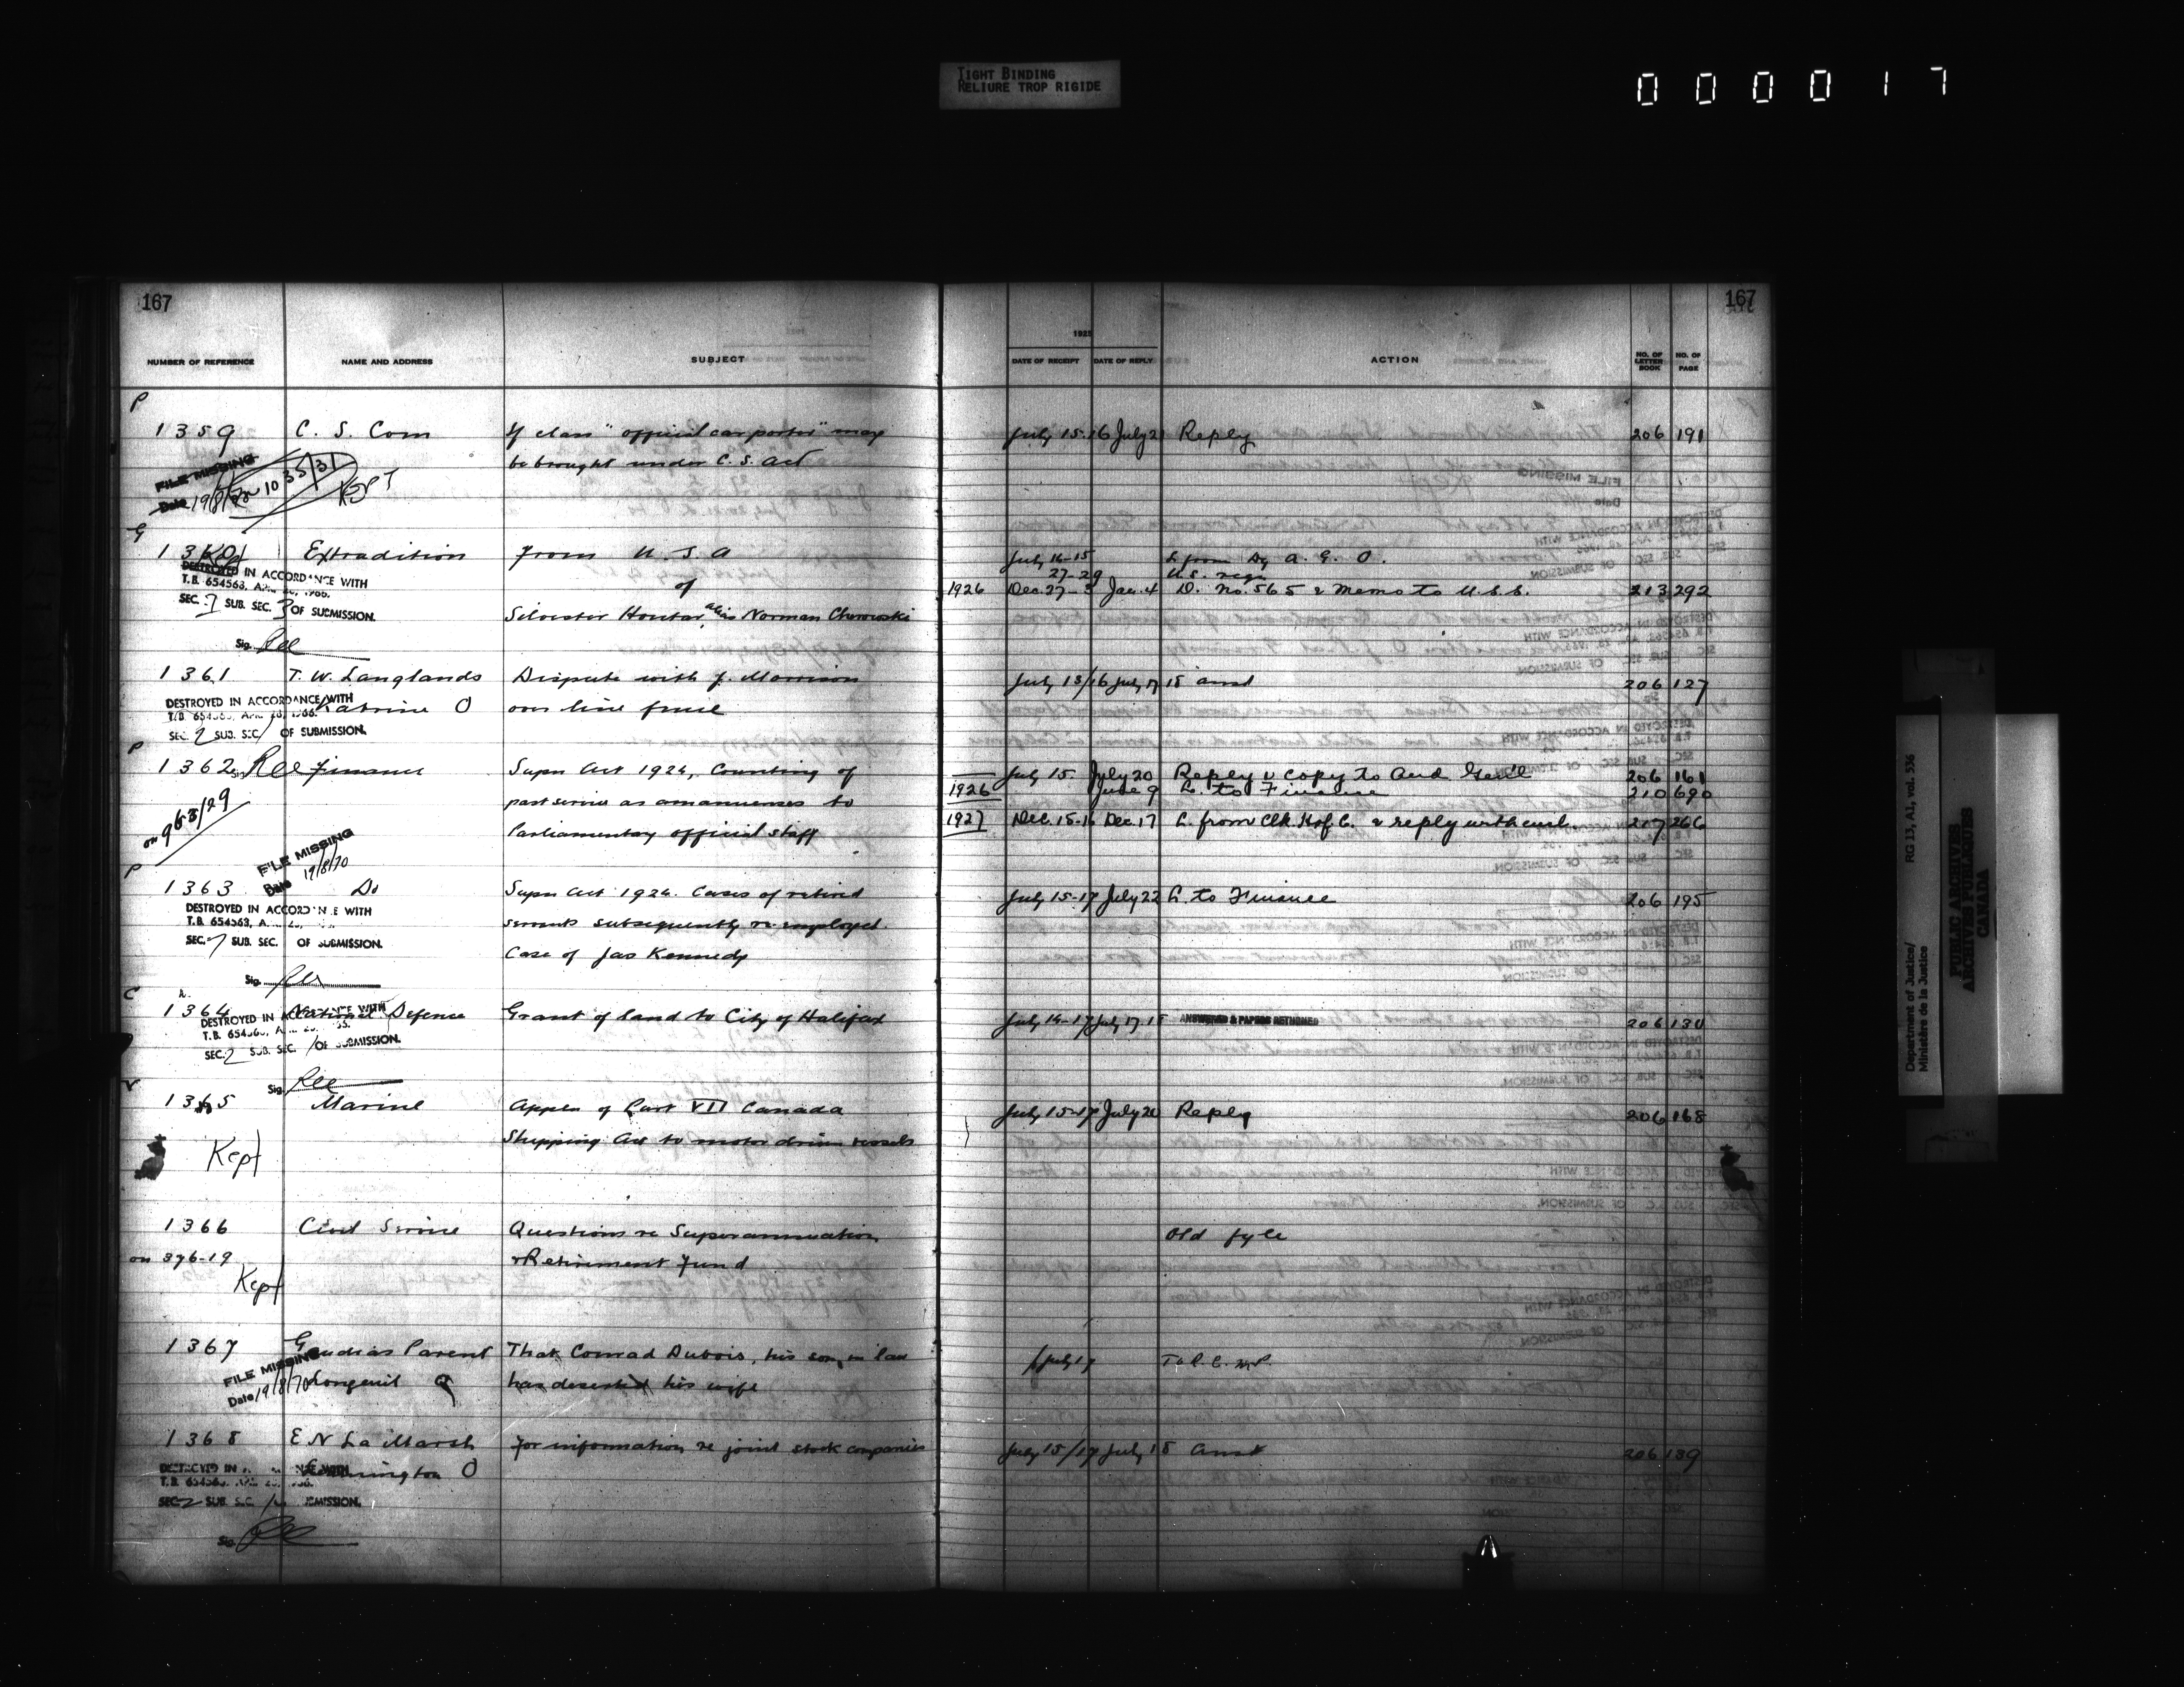 TIGHT BINDING
RELIURE TROP RIGIDE
000017
167
167
1925
NUMBER OF REFERENCE NAME AND ADDRESS SUBJECT DATE OF RECEIPT DATE OF REPLY ACTION NO. OF LETTER BOOK NO. OF PAGE
P
1359 C. S. Com If class "official car porter" may July 15-16 July 21 Reply 206 191
be brought under C. S. Act
FILE MISSING
Date 19/8/70 on 1035/31
KEPT
G
1360 Extradition from U. S. A July 14-15 L from Dy A. G. O.
27-29 U.S. reqn
DESTROYED IN ACCORDANCE WITH of 1926 Dec. 27-3 Jan. 4 D. No. 565 & memo to U.S.S. 213 292
T.B. 654563, APR. 28, 1966.
SEC. 7 SUB. SEC. 3 OF SUBMISSION. Silvester Houtar alias Norman Chorowski
Sig.
1361 T. W. Langlands Dispute with J. Morrison July 13/16 July 17 18 ansd 206 127
DESTROYED IN ACCORDANCE WITH Katrine O over line fence
T.B. 654563, APR. 28, 1966.
SEC. 2 SUB. SEC. 1 OF SUBMISSION.
P
1362 Finance Supn Act 1924, Counting of July 15 July 20 Reply & copy to Aud Genl 206 161
1926 June 9 L. to Finance 210 690
past service as amanuenses to
on 963/29 Parliamentary official staff 1927 Dec. 15-16 Dec. 17 L. from Clk. H of C. & reply with encl. 217 266
FILE MISSING
Date 19/8/70
P
1363 Do Supn Act 1924. Cases of retired July 15-17 July 22 L. to Finance 206 195
DESTROYED IN ACCORDANCE WITH
T.B. 654563, APR. 28, servants subsequently re-employed.
SEC. 7 SUB. SEC. OF SUBMISSION.
Case of Jas Kennedy
Sig.
C
1364 National Defence Grant of land to City of Halifax July 14-17 July 17 18 ANSWERED & PAPERS RETURNED 206 130
DESTROYED IN ACCORDANCE WITH
T.B. 654563, APR. 28,
SEC. 2 SUB. SEC. 1 OF SUBMISSION.
Sig.
V
1365 Marine Appln of Part VII Canada July 15-17 July 20 Reply 206 168
Shipping Act to motor driven vessels
Kept
1366 Civil Service Questions re Superannuation Old fyle
on 376-19 & Retirement Fund
Kept
1367 Parent That Conrad Dubois, his son in law July 17 To R. C. M. P.
FILE MISSING
Date 19/8/70 Longeuil Q has deserted his wife
1368 E N La Marsh For information re joint stock companies July 15/17 July 18 Ansd 206 139
DESTROYED IN ACCORDANCE WITH O
T.B. 654563, APR. 28, 1966.
SEC. 2 SUB. SEC. 1 OF SUBMISSION.
Sig.
Department of Justice/ RG 13, A1, vol. 536
Ministère de la Justice
PUBLIC ARCHIVES
ARCHIVES PUBLIQUES
CANADA